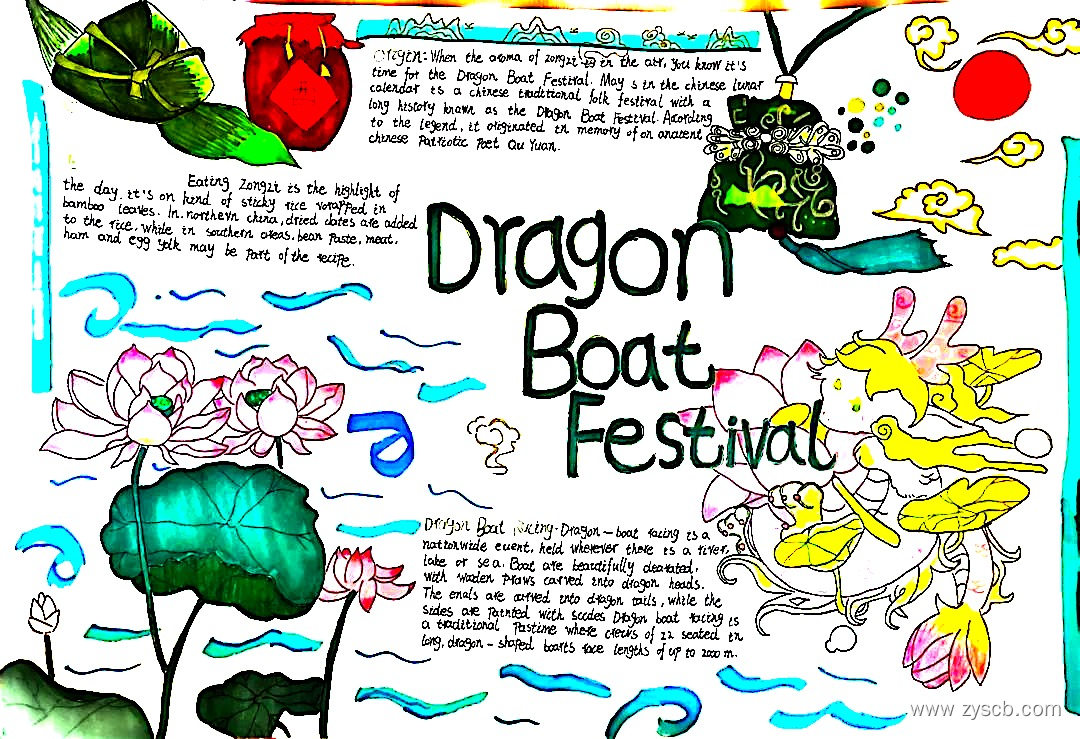 Origin: When the aroma of zongzi is in the air, you know it's
time for the Dragon Boat Festival. May 5 in the chinese lunar
calendar is a chinese traditional folk festival with a
long history known as the Dragon Boat Festival. Acording
to the legend, it originated in memory of an anacent
chinese Patriotic Poet Qu Yuan.
Eating Zongzi is the highlight of
the day. it's on kind of sticky rice wrapped in
bamboo leaves. In northern china, dried dates are added
to the rice, while in southern areas, bean paste, meat,
ham and egg yolk may be part of the recipe.
Dragon
Boat
Festival
Dragon Boat Racing - Dragon-boat racing is a
nationwide event, held wherever there is a river,
lake or sea. Boat are beautifully
with carved into dragon heads.
The are carved into dragon tails, while the
sides are Painted with Dragon boat racing is
a traditional Pastime where of 22 seated in
long, dragon-shaped race lengths of up to 2000 m.
www.zyscb.com